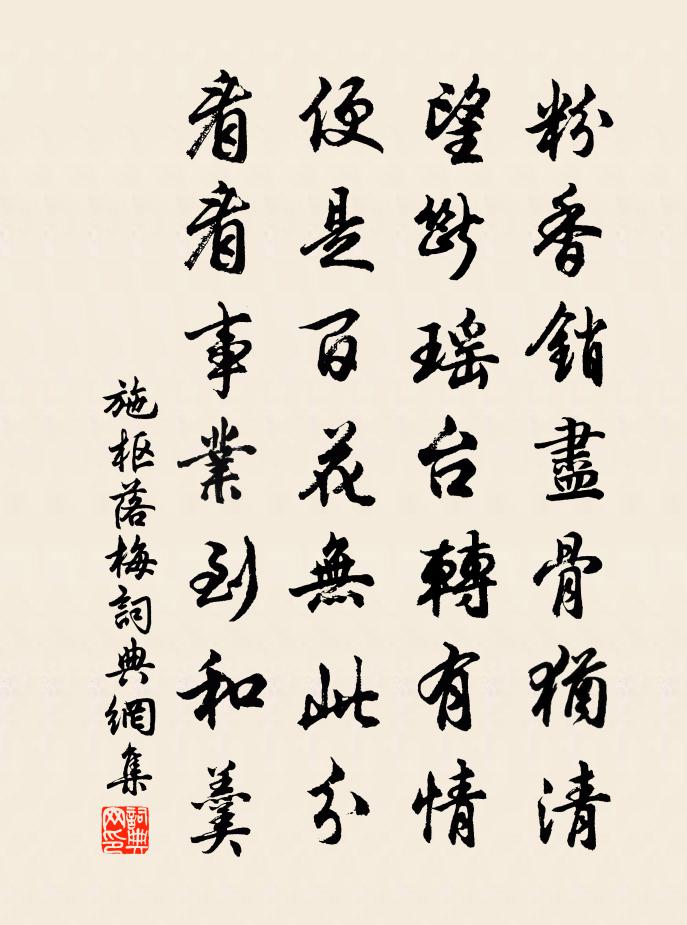 粉香銷盡骨猶清
望斷瑶台轉有情
便是百花無此分
看看事業到和羹
施枢落梅詞典網集
詞典网印